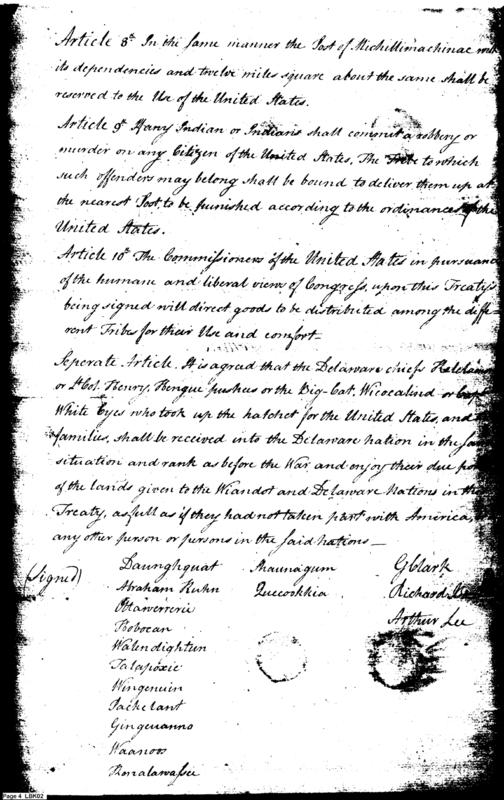 Article 8th In the same manner the Post of Michillimachinac with
its dependencies and twelve miles square about the same shall be
reserved to the Use of the United States.
Article 9th If any Indian or Indians shall commit a robbery or
murder on any Citizen of the United States, The Tribe to which
such offenders may belong shall be bound to deliver them up at
the nearest Post, to be punished according to the ordinances of the
United States.
Article 10th The Commissioners of the United States in pursuance
of the humane and liberal views of Congress, upon this Treaty's
being signed will direct goods to be distributed among the diffe-
rent Tribes for their Use and comfort—
Seperate Article. It is agreed that the Delaware chiefs
or Lt Col. Henry, Hengue pushees or the Big-Cat, Wicocalind or Capt
White Eyes who took up the hatchet for the United States, and
families, shall be received into the Delaware nation in the same
situation and rank as before the War, and enjoy their due
of the lands given to the Wiandot and Delaware Nations in the
Treaty, as full as if they had not taken part with America,
any other person or persons in the said nations—
(Signed)
Daunghquat Shaunagum GClark
Abraham Kuhn Quecookkia Richard
Ottawerreri Arthur Lee
Hobocan
Walendightun
Talapoxie
Wingenum
Packelant
Gingewanno
Waanoos
Konalawassee
Page 4 LBK02